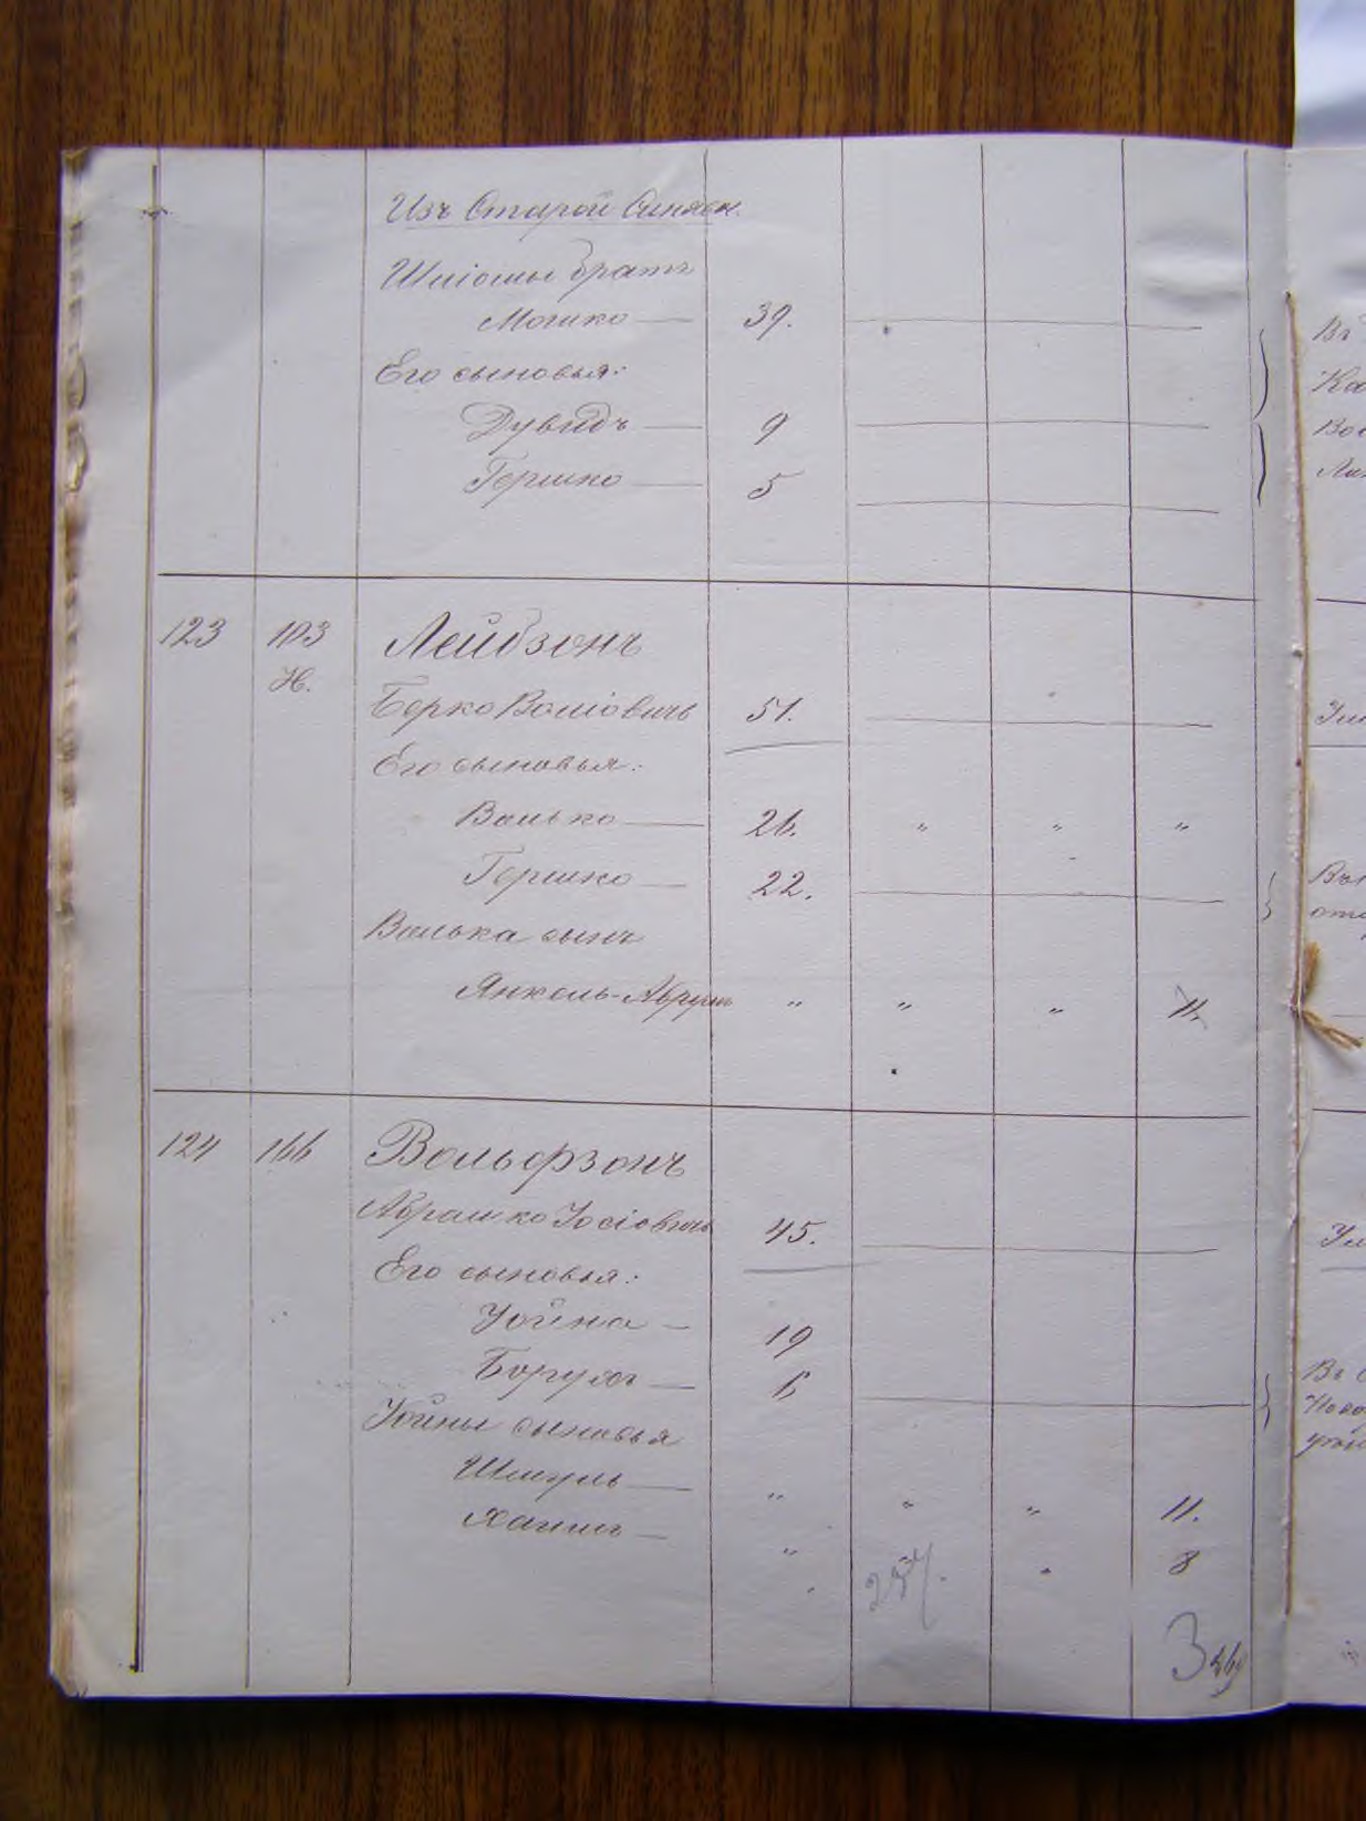 Изъ Старой Синявы.
Шліомы братъ
Мошко — 39.
Его сыновья:
Дувидъ — 9
Гершко — 5
123 103 Лейбзонъ
Н.
Берко Воліовичъ 51.
Его сыновья:
Волько — 26. " " "
Гершко — 22.
Волька сынъ
Янкель-Абрумъ " " " 11.
124 166 Вольфзонъ
Абрамко Іосіовичъ 45.
Его сыновья:
Іойна — 19
Борухъ — 6
Іойны сыновья
Шмуль — " " " 11.
Хаимъ — " " 8
3
Въ
Ка
Вос
Ум
Ум
Въ